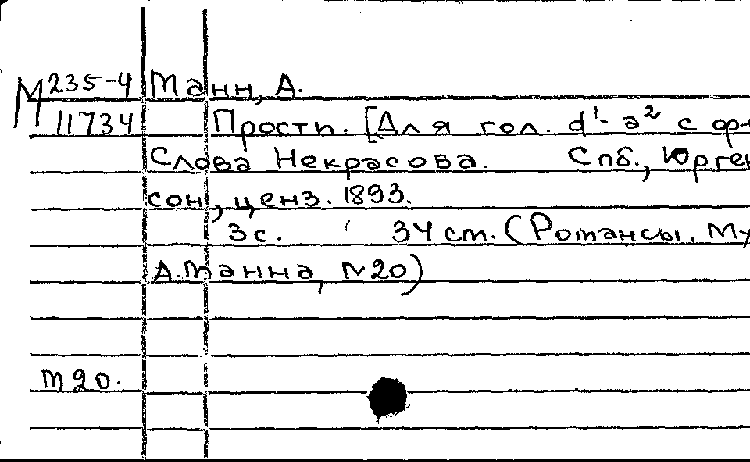 М 235-4 Манн, А.
11734 Прости. [Для гол. d¹- a² с ф-
Слова Некрасова. Спб., Юрген
сон, ценз. 1893.
3 с. 34 см. (Романсы. Му
А. Манна, N20)
м20.